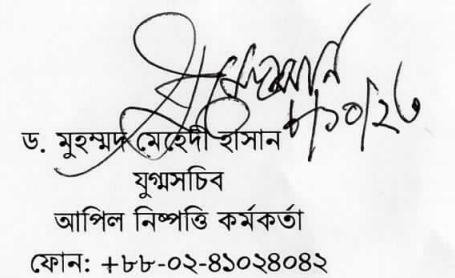 ৮/১০/২৩
ড. মুহম্মদ মেহেদী হাসান
যুগ্মসচিব
আপিল নিষ্পত্তি কর্মকর্তা
ফোন: +৮৮-০২-৪১০২৪০৪২